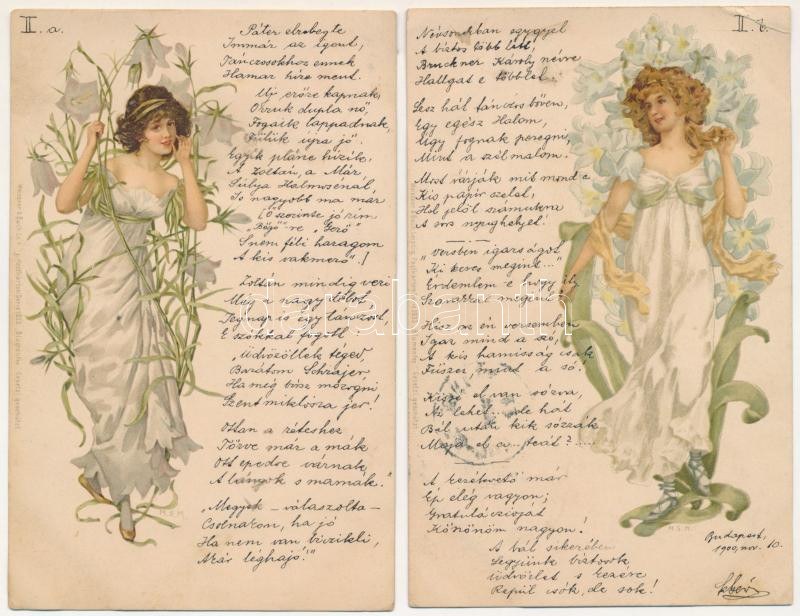 II. a.
Páter elrebegte
Immár az igent,
Tánczosokhoz ennek
Hamar híre ment.
Uj erőre kapnak,
Orruk dupla nő,
Fogaik lappadnak,
Fülük újra jó.
Egyik pláne hízik,
A Zoltán, a Már,
Súlya Halmosénál,
Is nagyobb ma már
(Őszinte jó rím
"Bégő"-re "Gerő"
S nem féli haragom
A kis vakmerő"!
Zoltán mindig veri
Még a nagy dobot
Tegnap is egy tánczost,
E szókkal fogott
"Üdvözöllek téged
Barátom Schrajer
Ha még bírsz mozogni
Szent miklósra jer!
Ottan a réteshez
Törve már a mák
Ott epedve várnak
A lányok s mamák."
"Megyek – válaszolta –
Csolnakon, ha jó
Ha nem van bizikli,
Akár léghajó!"
M.S.M.
II. b.
Névsorukban egygyel
A biztos több lett,
Bruckner Károly névre
Hallgat e többlet.
Lesz hát tánczos bőven,
Egy egész Halom,
Úgy fognak peregni,
Mint a szélmalom.
Most várják mit mond e
Kis papír szelet,
Hol jelöl számukra
A sors nyughelyet!
"Versben igazságot
Ki keres megint..."
Érdemlem e hogy ily
Szavakkal megint.
Hisz az én versemben
Igaz mind a szó,
A kis hamisság csak
Fűszer, mind a só.
Kissé el van sózva,
Az lehet... de hát
Bál után kik sózzák
Majd el a ... teát? .....
A kezelvető már
Ép elég vagyon;
Gratulációját
Köszönöm nagyon!
A bál sikerében
Legyünk biztosak
Üdvözlet s kezére
Repül csók, de sok!
Budapest,
1900, nov. 10.
M.S.M.
darabanth